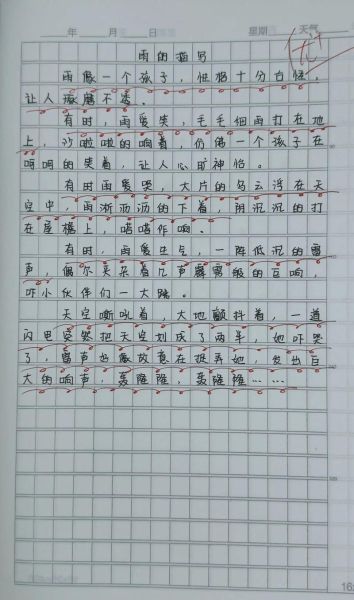 年 月 日 星期 天气
优
雨的描写
雨像一个孩子，性格十分古怪，
让人琢磨不透。
有时，雨爱笑，毛毛细雨打在地
上，沙啦啦的响着，仿佛一个孩子在
呵呵的笑着，让人心旷神怡。
有时雨爱哭，大片的乌云浮在天
空中，雨淅沥沥的下着，阴沉沉的打
在屋檐上，嗒嗒作响。
有时，雨爱生气，一阵低沉的雷
声，偶尔夹杂着几声霹雳般的巨响，
吓小伙伴们一大跳。
天空嘶吼着，大地颤抖着，一道
闪电突然把天空划成了两半，她吓哭
了，雷声好像故意在捉弄她，发出巨
大的响声，轰隆隆，轰隆隆……
16